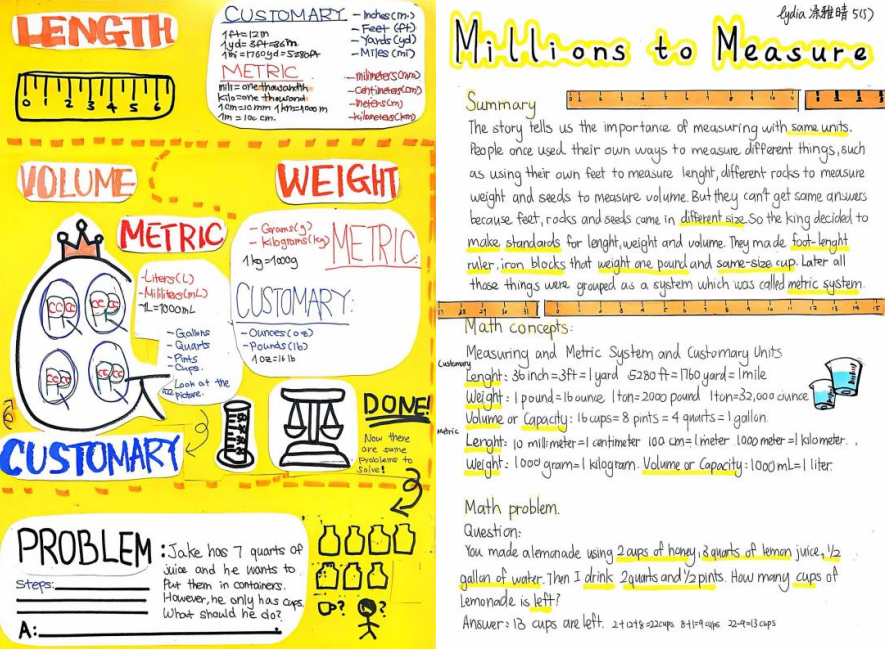 LENGTH
0 1 2 3 4 5 6
CUSTOMARY
1ft=12in
1yd=3ft=36in
1mi=1760yd=5280ft
- Inches(in.)
- Feet (ft)
- Yards (yd)
- Miles (mi)
METRIC
mili=one thousandth
kilo=one thousand
1cm=10mm 1km=1000m
1m=100cm.
- milimeters(mm)
- Centimeters(cm)
- meters(m)
- kilometers(km)
VOLUME
WEIGHT
METRIC
- Liters(L)
- Milliters(mL)
1L=1000mL
- Gallons
- Quarts
- Pints
- Cups.
Look at the
picture.
CUSTOMARY
- Grams(g)
- kilograms(kg)
1kg=1000g
METRIC:
CUSTOMARY:
- Ounces(oz)
- Pounds(lb)
1oz=16lb
DONE!
Now there
are some
problems to
solve!
PROBLEM:
Jake has 7 quarts of
juice and he wants to
Put them in containers.
However, he only has cups.
What should he do?
Steps:
A:
? ?
Lydia 涂雅晴 5(5)
Millions to Measure
Summary
The story tells us the importance of measuring with same units.
People once used their own ways to measure different things, such
as using their own feet to measure lenght, different rocks to measure
weight and seeds to measure volume. But they can't get same answers
because feet, rocks and seeds came in different size. So the king decided to
make standards for lenght, weight and volume. They made foot-lenght
ruler, iron blocks that weight one pound and same-size cup. Later all
those things were grouped as a system which was called metric system.
Math concepts:
Measuring and Metric System and Customary Units
Customary
Lenght: 36 inch=3ft=1 yard 5280ft=1760 yard=1 mile
Weight: 1 pound=16 ounce 1 ton=2000 pound 1 ton=32,000 ounce
Volume or Capacity: 16 cups=8 pints=4 quarts=1 gallon.
metric
Lenght: 10 millimeter=1 cantimeter 100 cm=1 meter 1000 meter=1 kilometer.
Weight: 1000 gram=1 kilogram. Volume or Capacity: 1000mL=1 liter.
Math problem.
Question:
You made a lemonade using 2 cups of honey, 3 quarts of lemon juice, 1/2
gallon of water. Then I drink 2 quarts and 1/2 pints. How many cups of
Lemonade is left?
Answer: 13 cups are left. 2+12+8=22cups 8+1=9 cups 22-9=13 cups